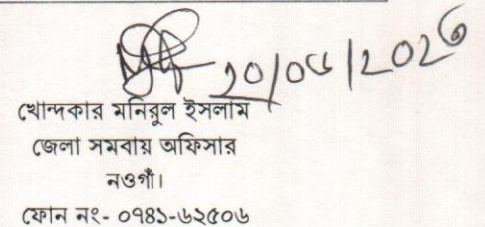 খোন্দকার মনিরুল ইসলাম
জেলা সমবায় অফিসার
নওগাঁ।
ফোন নং- ০৭৪১-৬২৫০৬